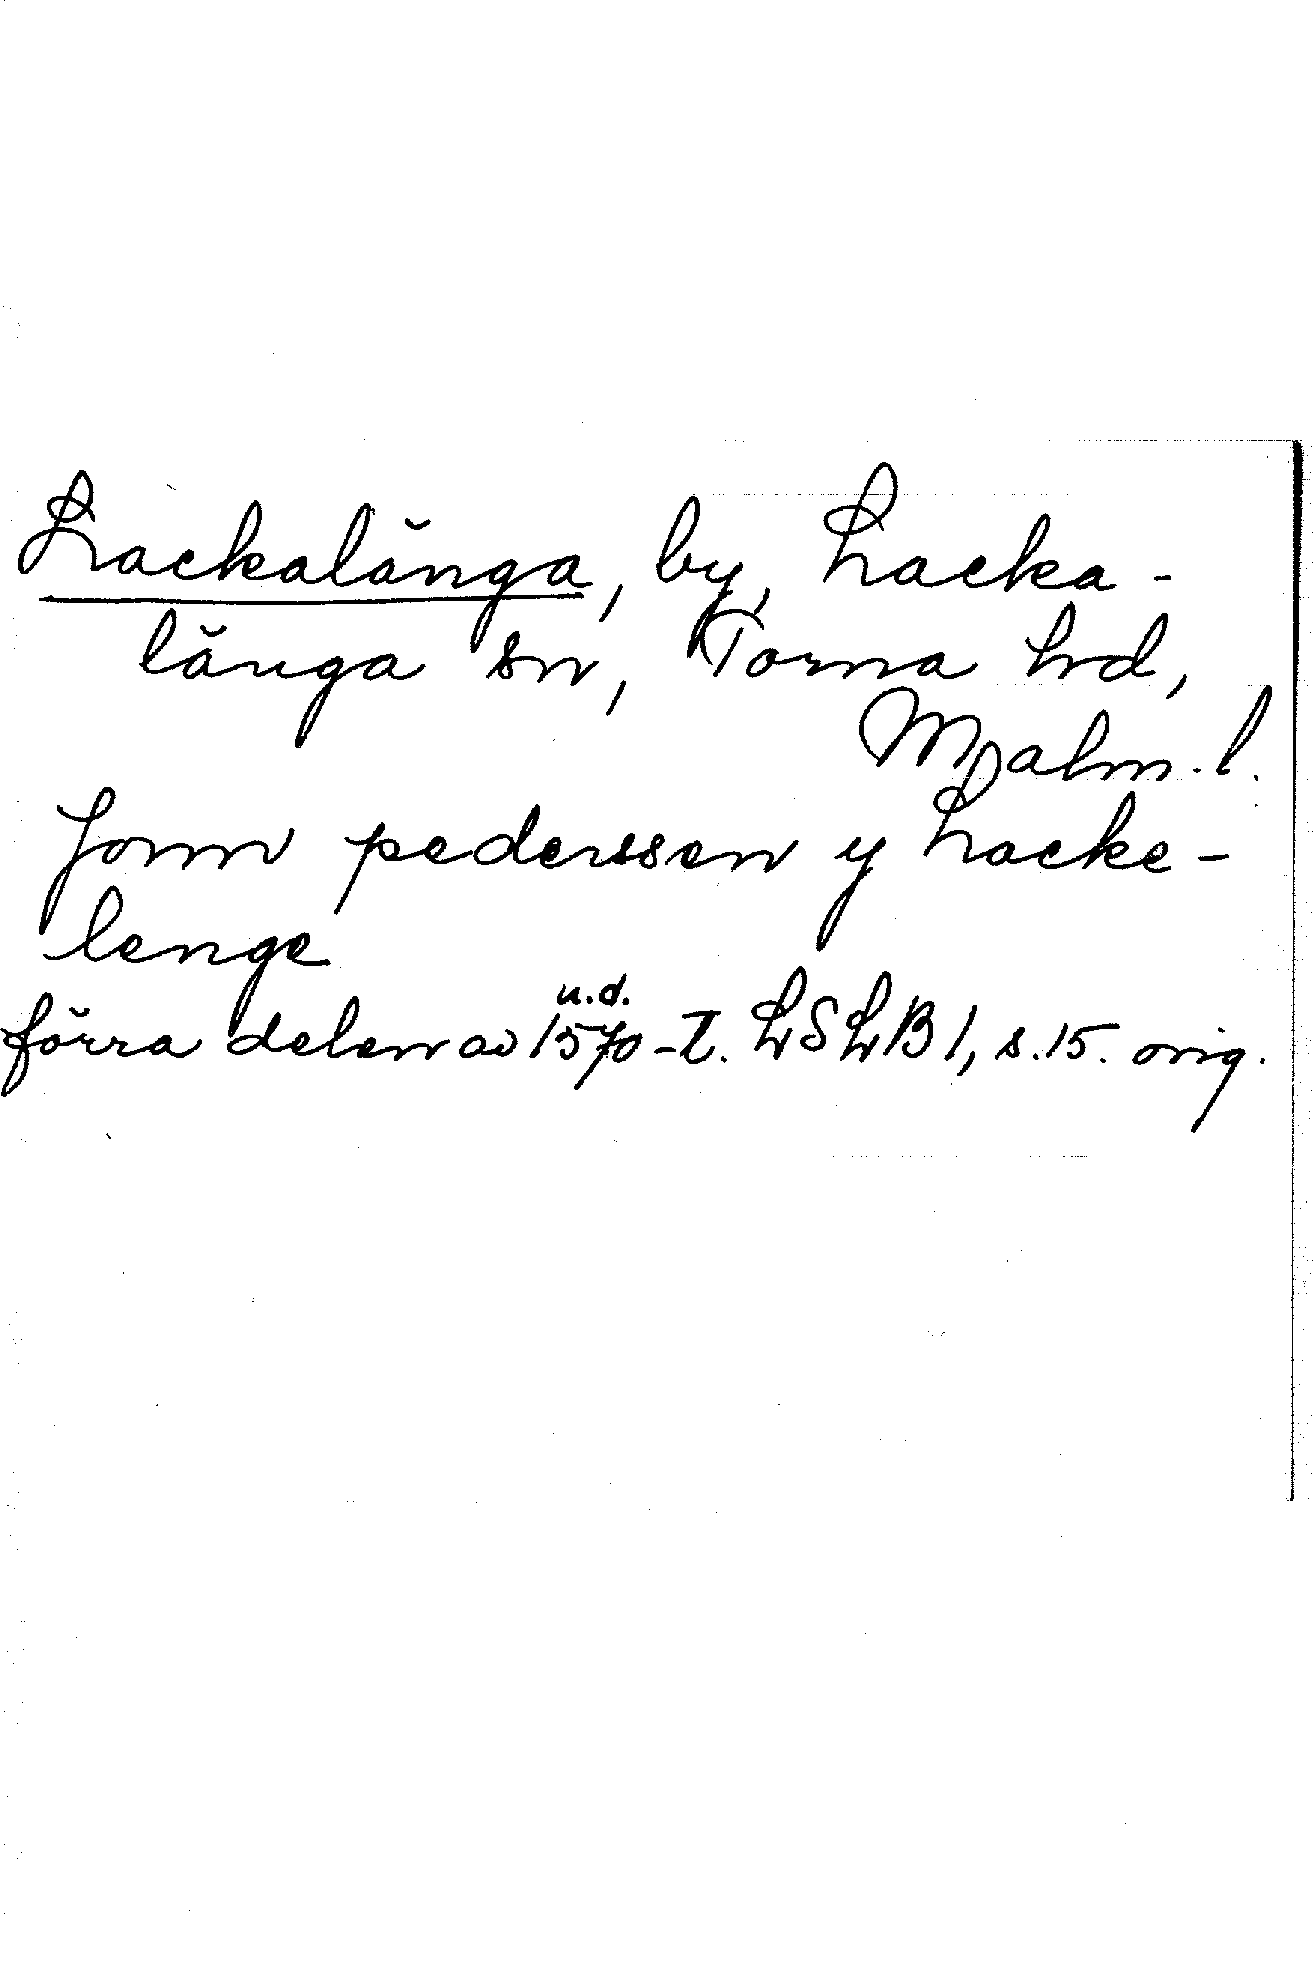 Lackalänga, by, Lacka-
länga sn, Torna hd,
Malm. l.
Jonn pederssen y Lacke-
lenge
u.d.
förra delen av 1570-t. LSLB 1, s. 15. orig.